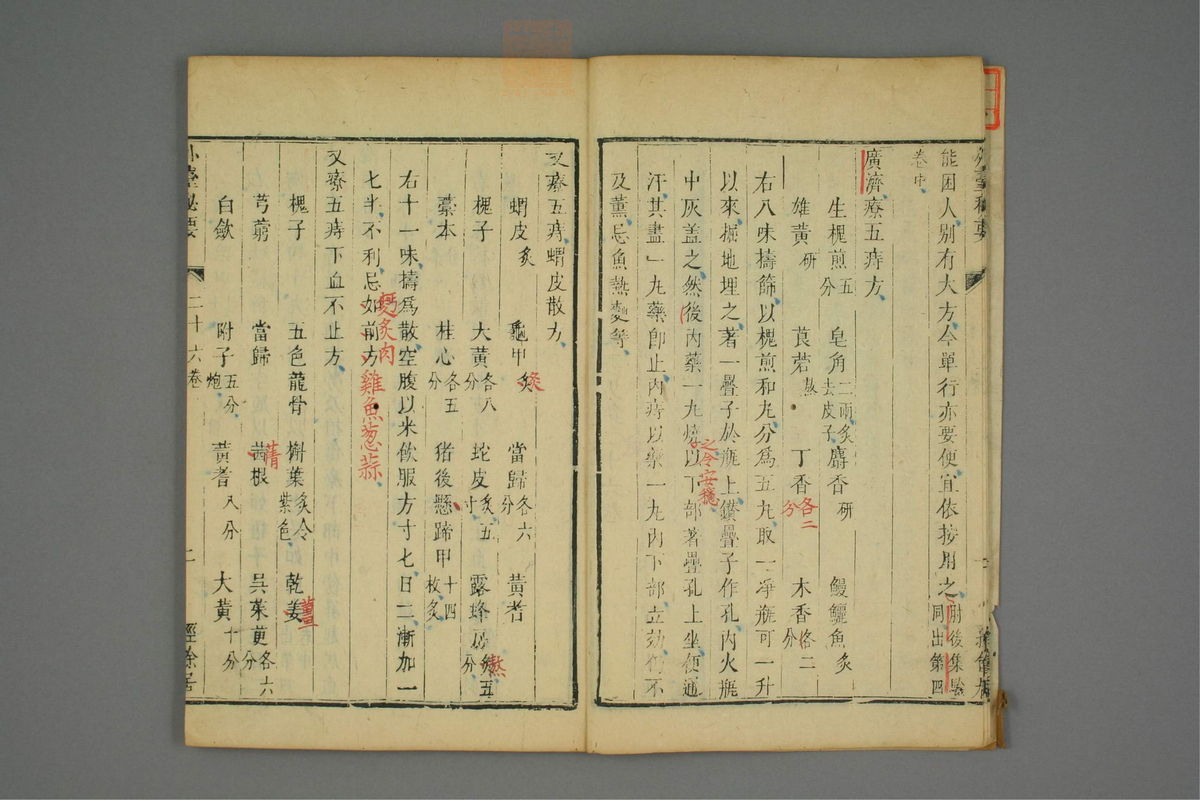 能困人別有大方今單行亦要便宜依按用之肘後集驗同出第四
卷中
廣濟療五痔方
生槐煎五分 皂角二兩炙去皮子 麝香研 鰻鱺魚炙
雄黃研 莨菪熬 丁香各二分 木香各二分
右八味擣篩以槐煎和丸分爲五丸取一淨瓶可一升
以來掘地埋之著一疊子於瓶上鑽疊子作孔內火瓶
中灰蓋之然後內藥一丸燒以下部著疊孔上坐便通
之令安穩
汗其盡一丸藥卽止內痔以藥一丸內下部立効行不
及薰忌魚熱麵等
又療五痔蝟皮散方
蝟皮炙 龜甲炙 當歸各六分 黃耆
炙
槐子 大黃各八分 蛇皮炙五寸 露蜂房炙五分
熬
藁本 桂心各五分 猪後懸蹄甲十四枚炙
右十一味擣爲散空腹以米飲服方寸七日二漸加一
七半不利忌如前方
炙肉
雞魚葱蒜
又療五痔下血不止方
槐子 五色龍骨 槲葉炙令紫色 乾姜
薑
芎藭 當歸 茜根 吳茱萸各六分
蒨
白斂 附子五分炮 黃耆八分 大黃十分
外臺秘要 二十六卷 二 經餘居